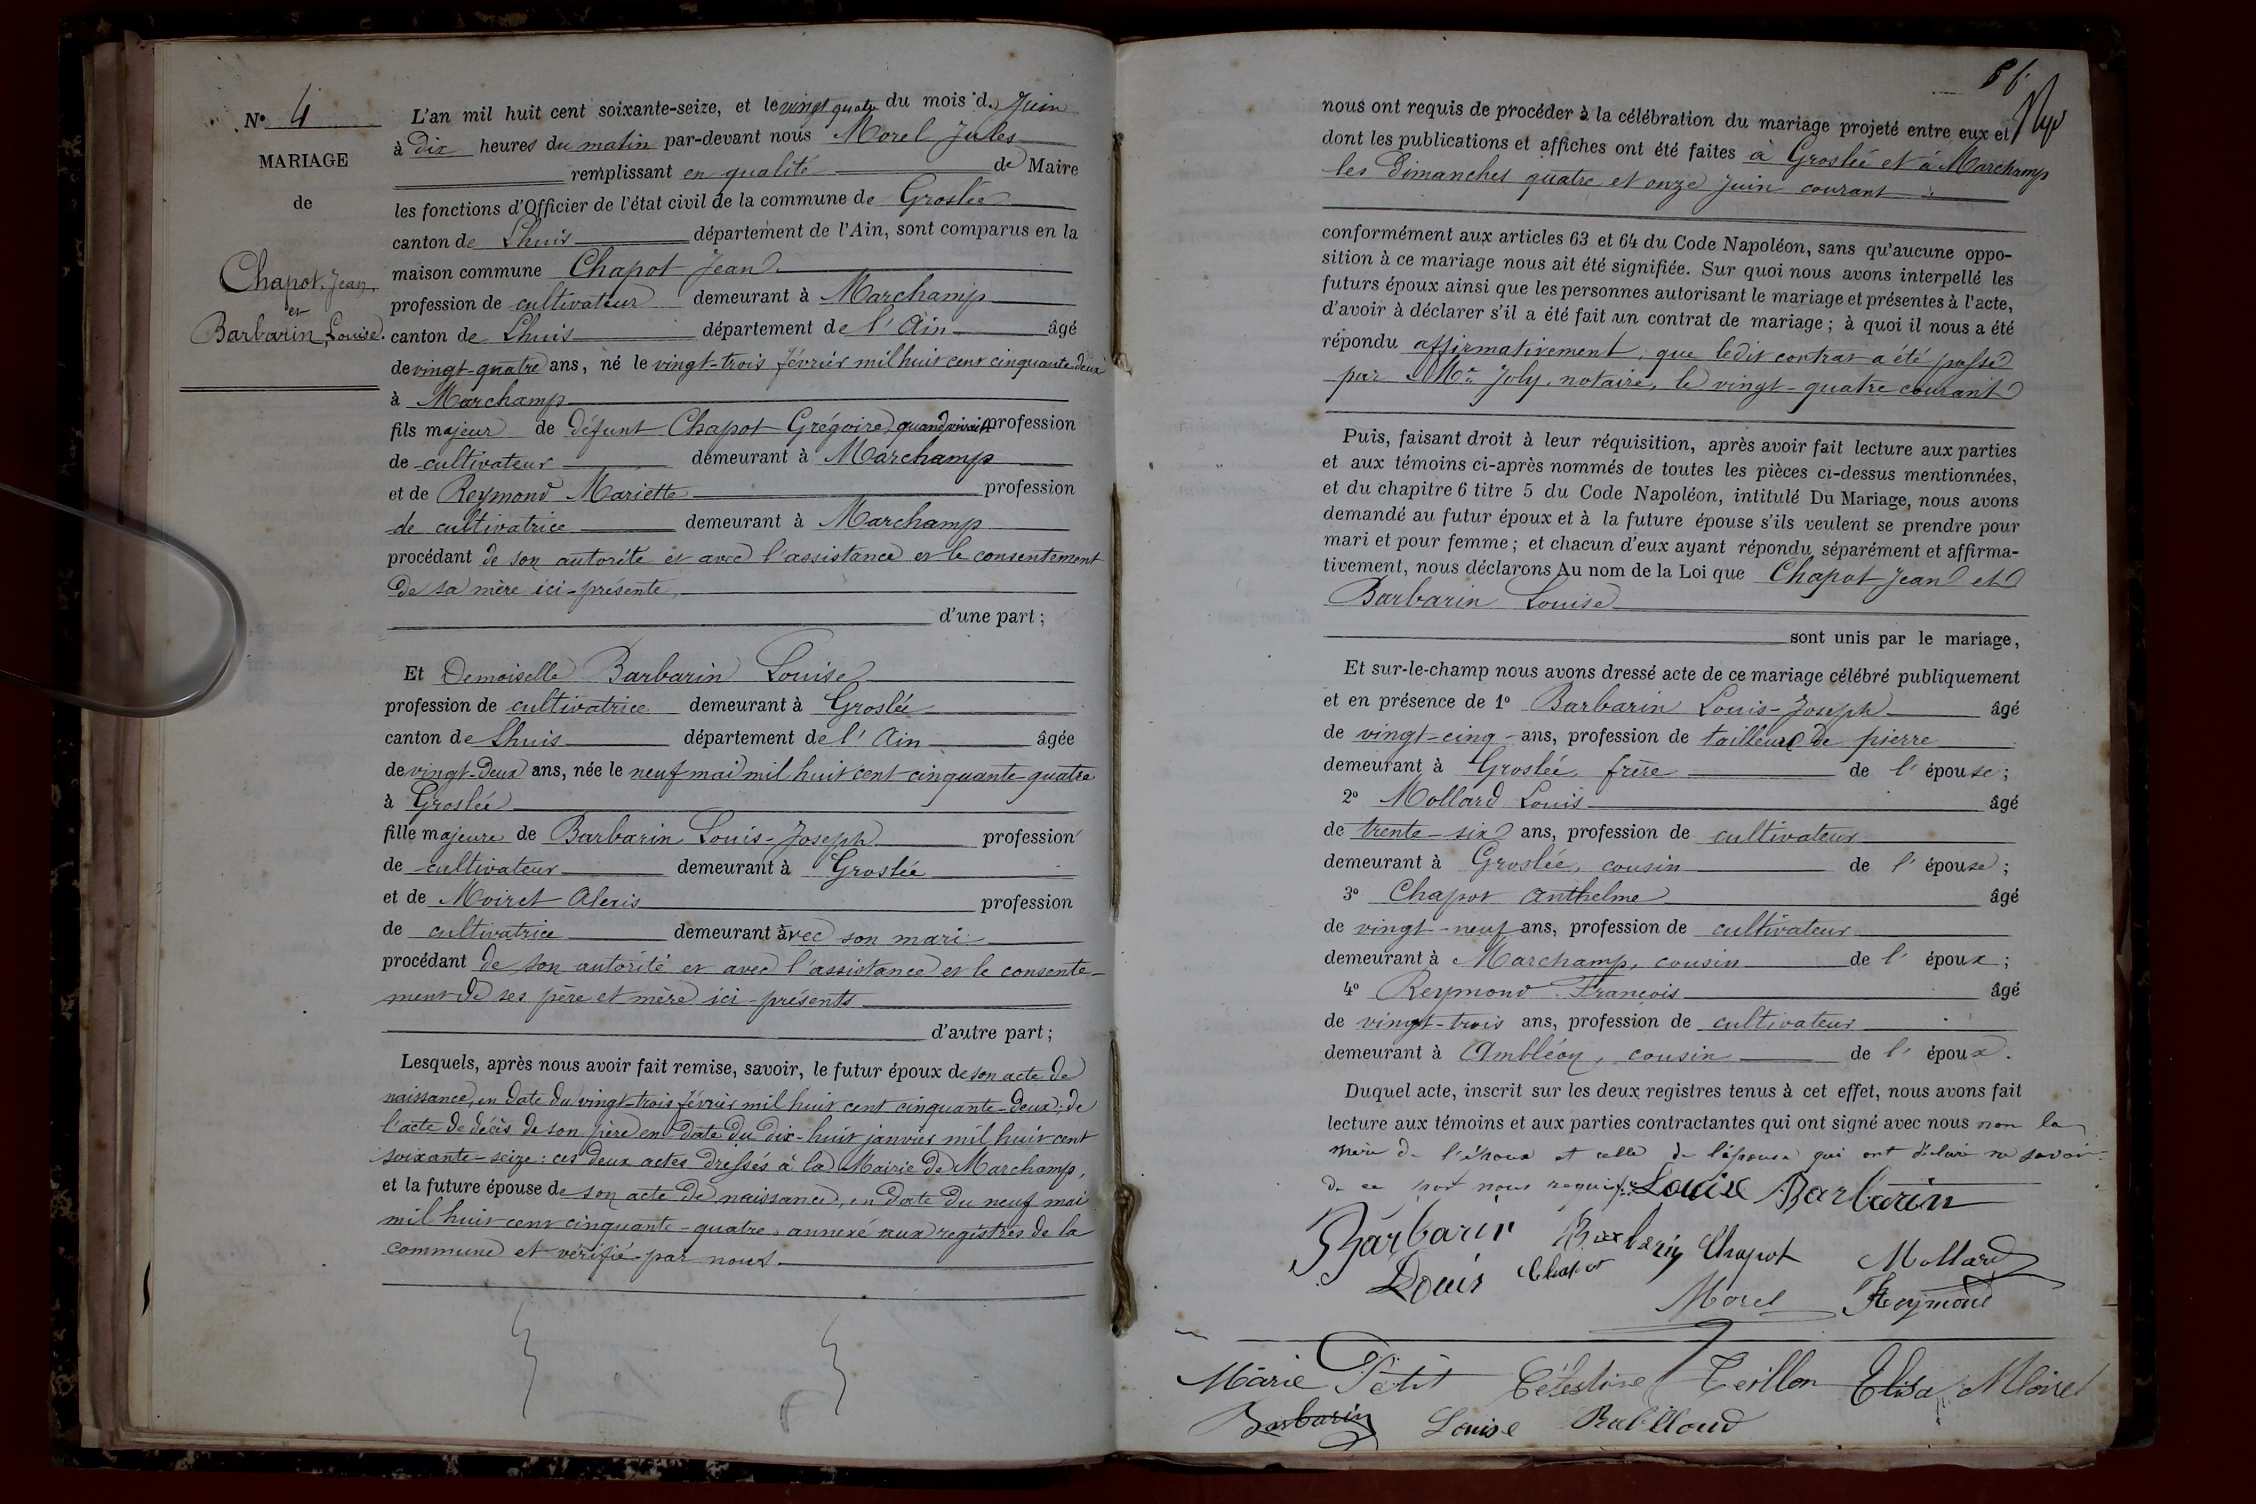 N° 4
MARIAGE
de
Chapot Jean,
et
Barbarin Louise.
L'an mil huit cent soixante-seize, et le vingt quatre du mois d. Juin
à dix heures du matin par-devant nous Morel Jules
remplissant en qualité de Maire
les fonctions d'Officier de l'état civil de la commune de Groslée
canton de Lhuis département de l'Ain, sont comparus en la
maison commune Chapot Jean
profession de cultivateur demeurant à Marchamp
canton de Lhuis département de l'Ain âgé
de vingt-quatre ans, né le vingt-trois février mil huit cent cinquante deux
à Marchamp
fils majeur de défunt Chapot Grégoire, quand vivait profession
de cultivateur demeurant à Marchamp
et de Reymond Mariette profession
de cultivatrice demeurant à Marchamp
procédant de son autorité et avec l'assistance et le consentement
de sa mère ici-présente,
d'une part;
Et Demoiselle Barbarin Louise
profession de cultivatrice demeurant à Groslée
canton de Lhuis département de l'Ain âgée
de vingt-deux ans, née le neuf mai mil huit cent cinquante-quatre
à Groslée
fille majeure de Barbarin Louis-Joseph profession
de cultivateur demeurant à Groslée
et de Moiret Alexis profession
de cultivatrice demeurant avec son mari
procédant de son autorité et avec l'assistance et le consente-
ment de ses père et mère ici-présents
d'autre part;
Lesquels, après nous avoir fait remise, savoir, le futur époux de son acte de
naissance, en date du vingt-trois février mil huit cent cinquante-deux; de
l'acte de décès de son père en date du dix-huit janvier mil huit cent
soixante-seize: ces deux actes dressés à la Mairie de Marchamp,
et la future épouse de son acte de naissance, en date du neuf mai
mil huit cent cinquante-quatre, annexé aux registres de la
commune et vérifié par nous
nous ont requis de procéder à la célébration du mariage projeté entre eux et
dont les publications et affiches ont été faites à Groslée et à Marchamp
les dimanches quatre et onze Juin courant :
conformément aux articles 63 et 64 du Code Napoléon, sans qu'aucune oppo-
sition à ce mariage nous ait été signifiée. Sur quoi nous avons interpellé les
futurs époux ainsi que les personnes autorisant le mariage et présentes à l'acte,
d'avoir à déclarer s'il a été fait un contrat de mariage; à quoi il nous a été
répondu affirmativement, que ledit contrat a été passé
par Me Joly, notaire, le vingt-quatre courant
Puis, faisant droit à leur réquisition, après avoir fait lecture aux parties
et aux témoins ci-après nommés de toutes les pièces ci-dessus mentionnées,
et du chapitre 6 titre 5 du Code Napoléon, intitulé Du Mariage, nous avons
demandé au futur époux et à la future épouse s'ils veulent se prendre pour
mari et pour femme; et chacun d'eux ayant répondu séparément et affirma-
tivement, nous déclarons Au nom de la Loi que Chapot Jean et
Barbarin Louise
sont unis par le mariage,
Et sur-le-champ nous avons dressé acte de ce mariage célébré publiquement
et en présence de 1° Barbarin Louis-Joseph âgé
de vingt-cinq ans, profession de tailleur de pierre
demeurant à Groslée, frère de l'épouse;
2° Mollard Louis âgé
de trente-six ans, profession de cultivateur
demeurant à Groslée, cousin de l'épouse;
3° Chapot Anthelme âgé
de vingt-neuf ans, profession de cultivateur
demeurant à Marchamp, cousin de l'époux;
4° Reymond François âgé
de vingt-trois ans, profession de cultivateur
demeurant à Ambléon, cousin de l'époux.
Duquel acte, inscrit sur les deux registres tenus à cet effet, nous avons fait
lecture aux témoins et aux parties contractantes qui ont signé avec nous non la
mère de l'époux et celle de l'épouse qui ont déclaré ne savoir
de ce par nous requises Louise Barbarin
Barbarin Barbarin Chapot Mollard
Louis Chapot
Morel Reymond
Marie Petit Célestine Teillon Elisa Moiret
Barbarin Louise Rubilloud